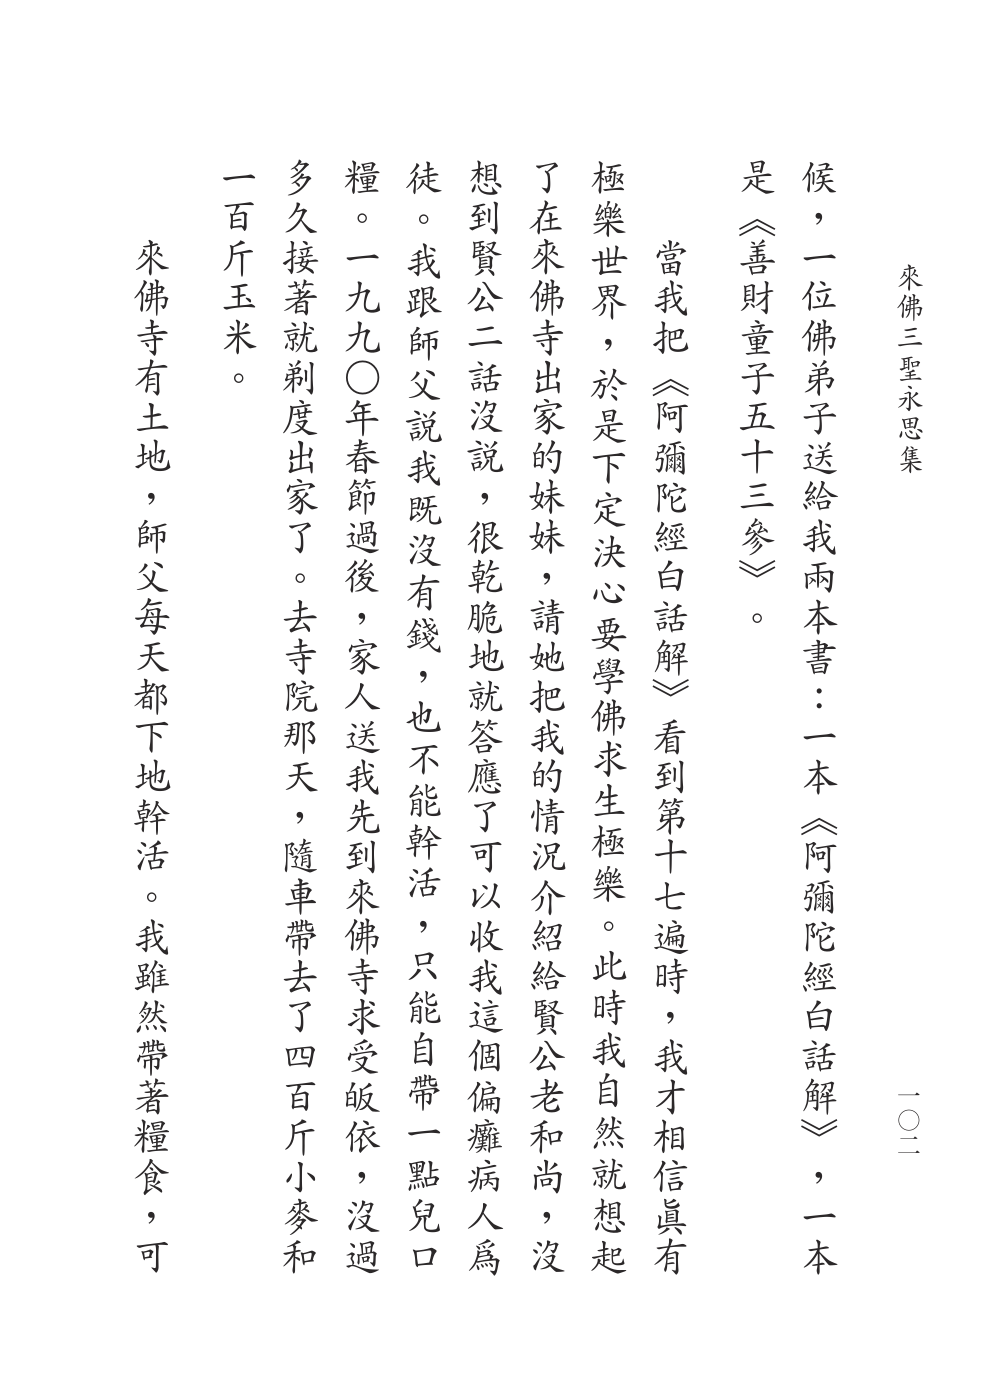 來佛三聖永思集
一〇二
候，一位佛弟子送給我兩本書：一本《阿彌陀經白話解》，一本
是《善財童子五十三參》。
當我把《阿彌陀經白話解》看到第十七遍時，我才相信眞有
極樂世界，於是下定決心要學佛求生極樂。此時我自然就想起
了在來佛寺出家的妹妹，請她把我的情況介紹給賢公老和尚，沒
想到賢公二話沒説，很乾脆地就答應了可以收我這個偏癱病人爲
徒。我跟師父説我既沒有錢，也不能幹活，只能自帶一點兒口
糧。一九九〇年春節過後，家人送我先到來佛寺求受皈依，沒過
多久接著就剃度出家了。去寺院那天，隨車帶去了四百斤小麥和
一百斤玉米。
來佛寺有土地，師父每天都下地幹活。我雖然帶著糧食，可